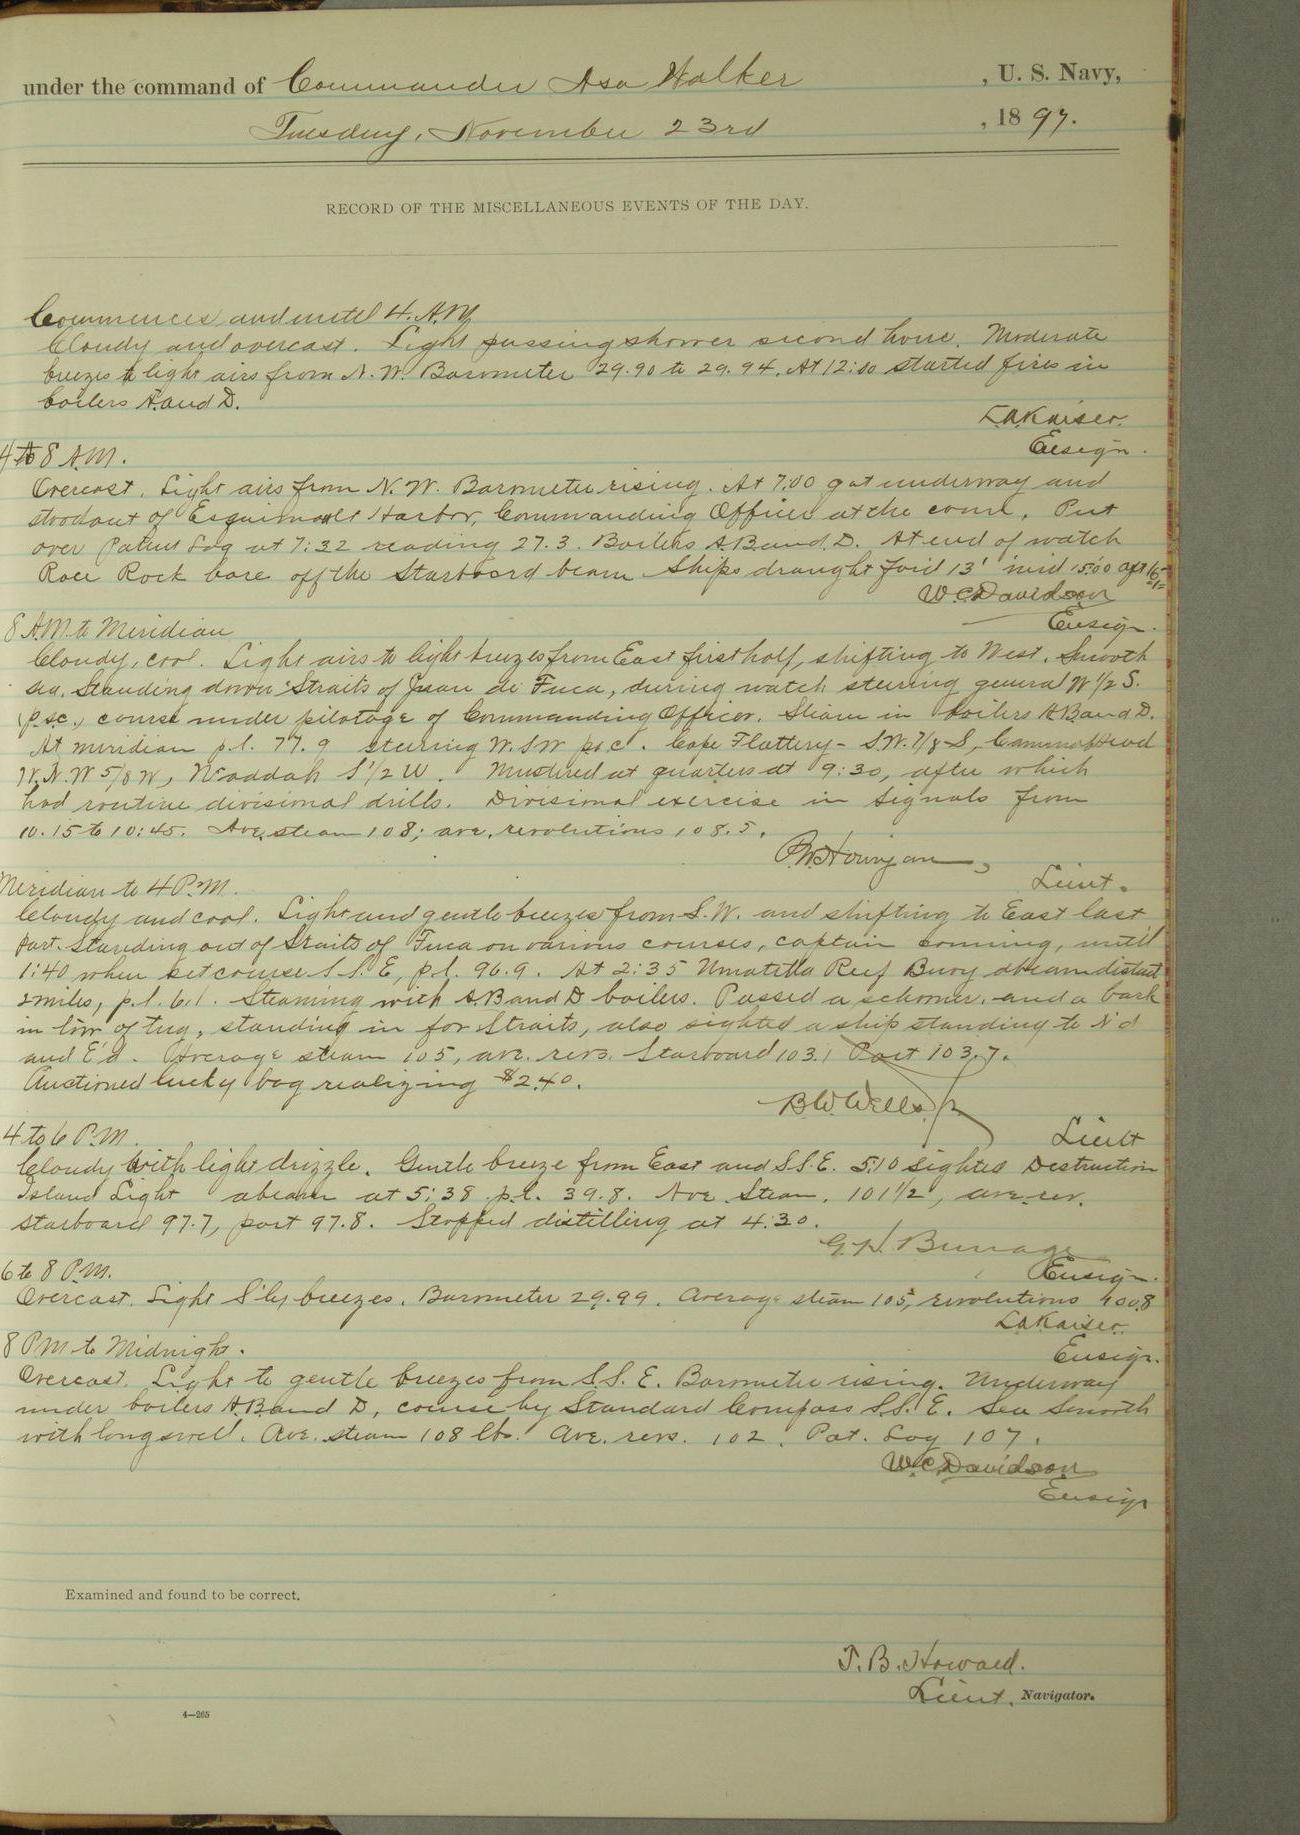 under the command of Commander Asa Walker, U. S. Navy,
Tuesday, November 23rd, 1897.
RECORD OF THE MISCELLANEOUS EVENTS OF THE DAY.
Commences and until 4. A.M.
Cloudy and overcast. Light passing shower second hour. Moderate
breezes to light airs from N. W. Barometer 29.90 to 29.94. At 12:00 started fires in
boilers A. and D.
L.A. Kaiser.
Ensign.
4 to 8 A.M.
Overcast. Light airs from N. W. Barometer rising. At 7:00 got underway and
stood out of Esquimalt Harbor, Commanding Officer at the conn. Put
over Patent Log at 7:32 reading 27.3. Boilers A. B. and D. At end of watch
Race Rock bore off the Starboard beam. Ships draught for'd 13' mid 15'00 aft
W. C. Davidson
Ensign.
8 A.M. to Meridian
Cloudy, cool. Light airs to light breezes from East first half, shifting to West. Smooth
sea. Standing down Straits of Juan de Fuca, during watch steering general W 1/2 S.
(p.s.c.) course under pilotage of Commanding Officer. Steam in boilers A. B. and D.
At meridian p.l. 77.9 steering W.S.W p.s.c. Cape Flattery - S.W. 7/8 S,
W. N. W 5/8 W, Waddah S 1/2 W. Mustered at quarters at 9:30, after which
had routine divisional drills. Divisional exercise in signals from
10.15 to 10:45. Ave. steam 108; ave. revolutions 108.5.
P.W. Hourigan,
Lieut.
Meridian to 4 P.M.
Cloudy and cool. Light and gentle breezes from S.W. and shifting to East last
part. Standing out of Straits of Fuca on various courses, captain conning, until
1:40 when set course S. S. E, p.l. 96.9. At 2:35 Umatilla Reef Buoy abeam distant
2 miles, p.l. 6.1. Steaming with A. B and D boilers. Passed a schooner, and a bark
in tow of tug, standing in for Straits, also sighted a ship standing to N'd
and E'd. Average steam 105, ave. revs. Starboard 103.1 Port 103.7.
Auctioned lucky bag realizing $2.40.
B. W. Wells Jr.
Lieut
4 to 6 P.M.
Cloudy with light drizzle. Gentle breeze from East and S.S.E. 5:10 sighted Destruction
Island Light abeam at 5:38 p.l. 39.8. Ave. Steam. 101 1/2, ave. rev.
starboard 97.7, port 97.8. Stopped distilling at 4:30.
G. H. Burrage
Ensign.
6 to 8 P.M.
Overcast. Light S'ly breezes. Barometer 29.99. Average steam 105, revolutions
L.A. Kaiser.
Ensign.
8 P.M to Midnight.
Overcast. Light to gentle breezes from S. S. E. Barometer rising. Underway
under boilers A. B. and D, course by Standard Compass S. S. E. Sea Smooth
with long swell. Ave. steam 108 lbs. Ave. revs. 102. Pat. Log 107.
W. C. Davidson
Ensign
Examined and found to be correct.
T. B. Howard.
Lieut. Navigator.
4—265